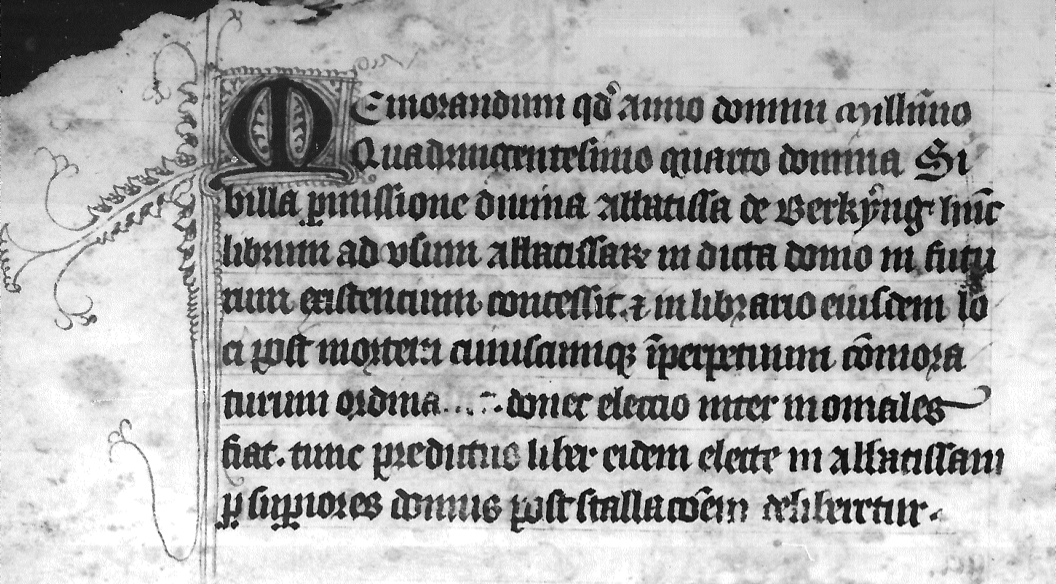 Memorandum qd̛ anno domini Millīmo
Quadringentesimo quarto domina Si
billa ꝑmissione diuina Abbatissa de Berkẏng hūc
librum ad vsum Abbatissaꝝ in dicta domo in futu
rum existencium concessit. ⁊ in librario eiusdem lo
ci post mortem cuiuscumqꝫ īperpetuum cōmora
turum ordina... donec eleccio inter moniales
fiat. tunc predictus liber eidem electe in Abbatissam
ꝑ suꝑiores domus post stallacōem deliberetur.